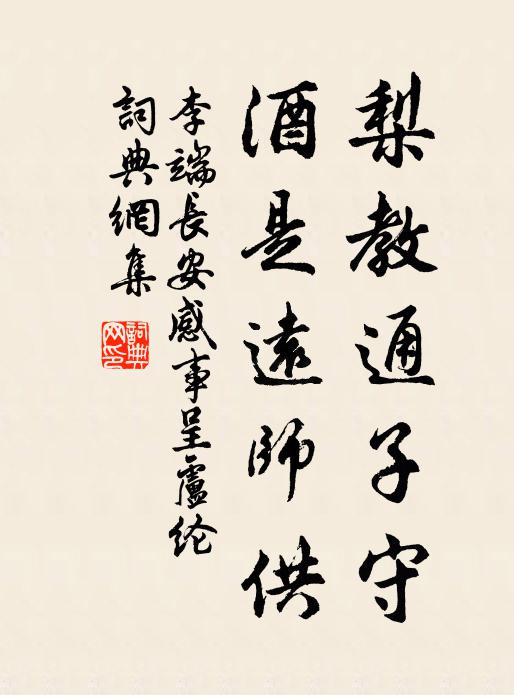 梨教通子守
酒是遠師供
李端長安感事呈盧纶
詞典網集
詞典网印